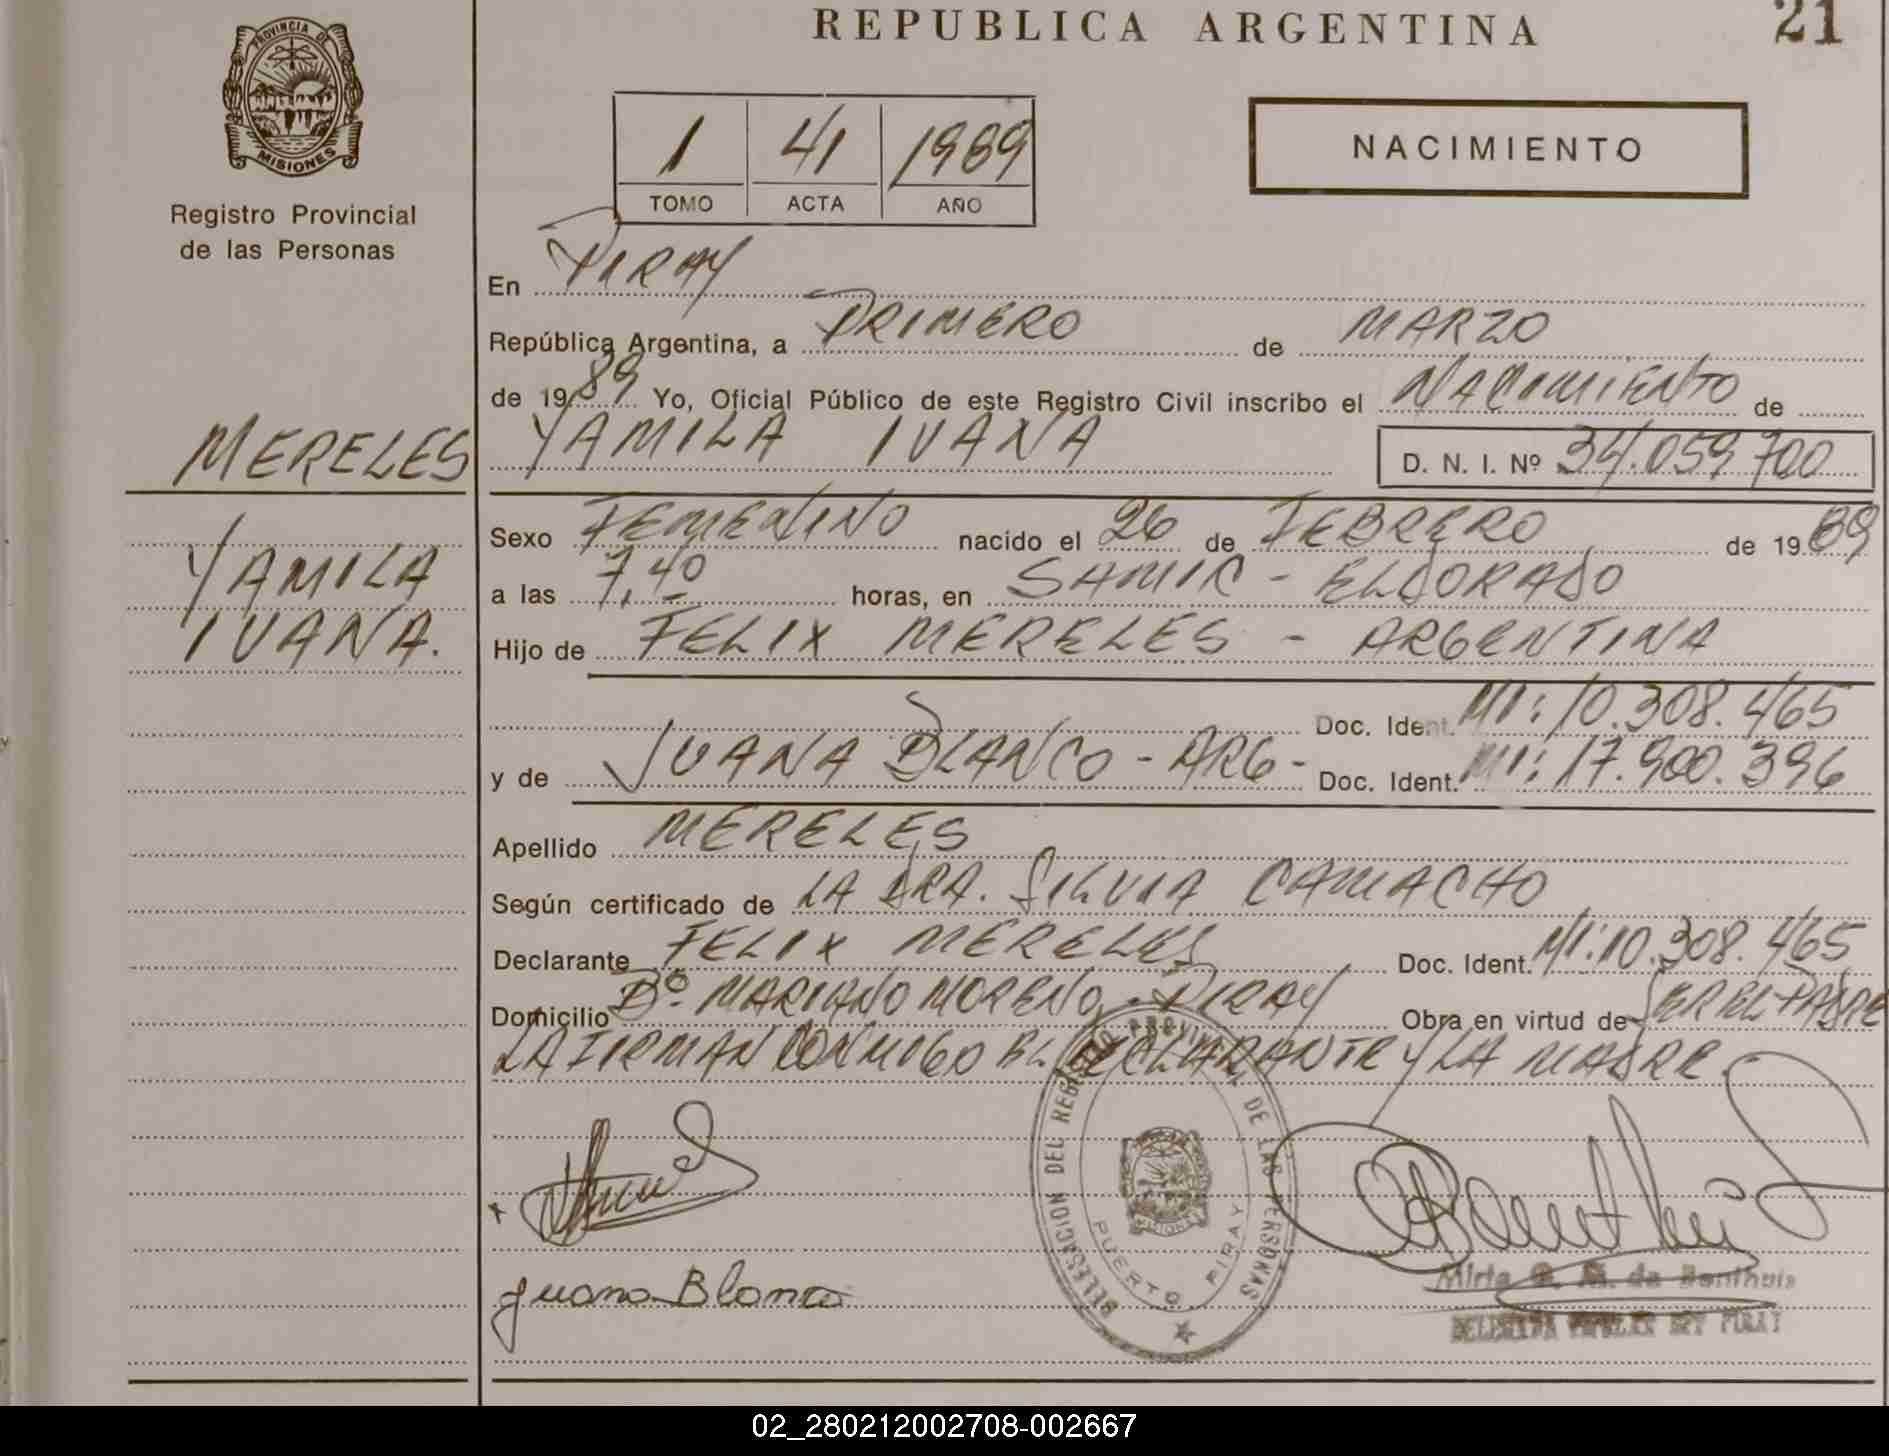 REPUBLICA ARGENTINA
21
PROVINCIA DE
MISIONES
Registro Provincial
de las Personas
1 41 1989
TOMO ACTA AÑO
NACIMIENTO
En PIRAY
República Argentina, a PRIMERO de MARZO
de 1989 Yo, Oficial Público de este Registro Civil inscribo el NACIMIENTO de
MERELES
YAMILA IVANA
D. N. I. Nº 34.059.700
YAMILA
IVANA.
Sexo FEMENINO nacido el 26 de FEBRERO de 1989
a las 7,40 horas, en SAMIC - ELDORADO
Hijo de FELIX MERELES - ARGENTINA
Doc. Ident. MI: 10.308.465
y de JUANA BLANCO - ARG - Doc. Ident. MI: 17.900.396
Apellido MERELES
Según certificado de LA DRA. SILVIA CAMACHO
Declarante FELIX MERELES Doc. Ident. MI: 10.308.465
Domicilio Bº. MARIANO MORENO - PIRAY Obra en virtud de SER EL PADRE
LA FIRMAN CONMIGO EL DECLARANTE Y LA MADRE.
DELEGACION DEL REGISTRO PROVINCIAL DE LAS PERSONAS
MISIONES
PUERTO PIRAY
Juana Blanco
Mirta de Bonthuis
PIRAY
02_280212002708-002667